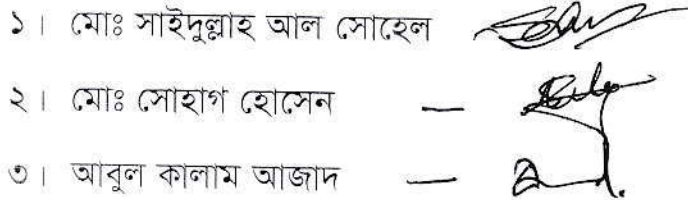 ১। মোঃ সাইদুল্লাহ আল সোহেল
২। মোঃ সোহাগ হোসেন —
৩। আবুল কালাম আজাদ —